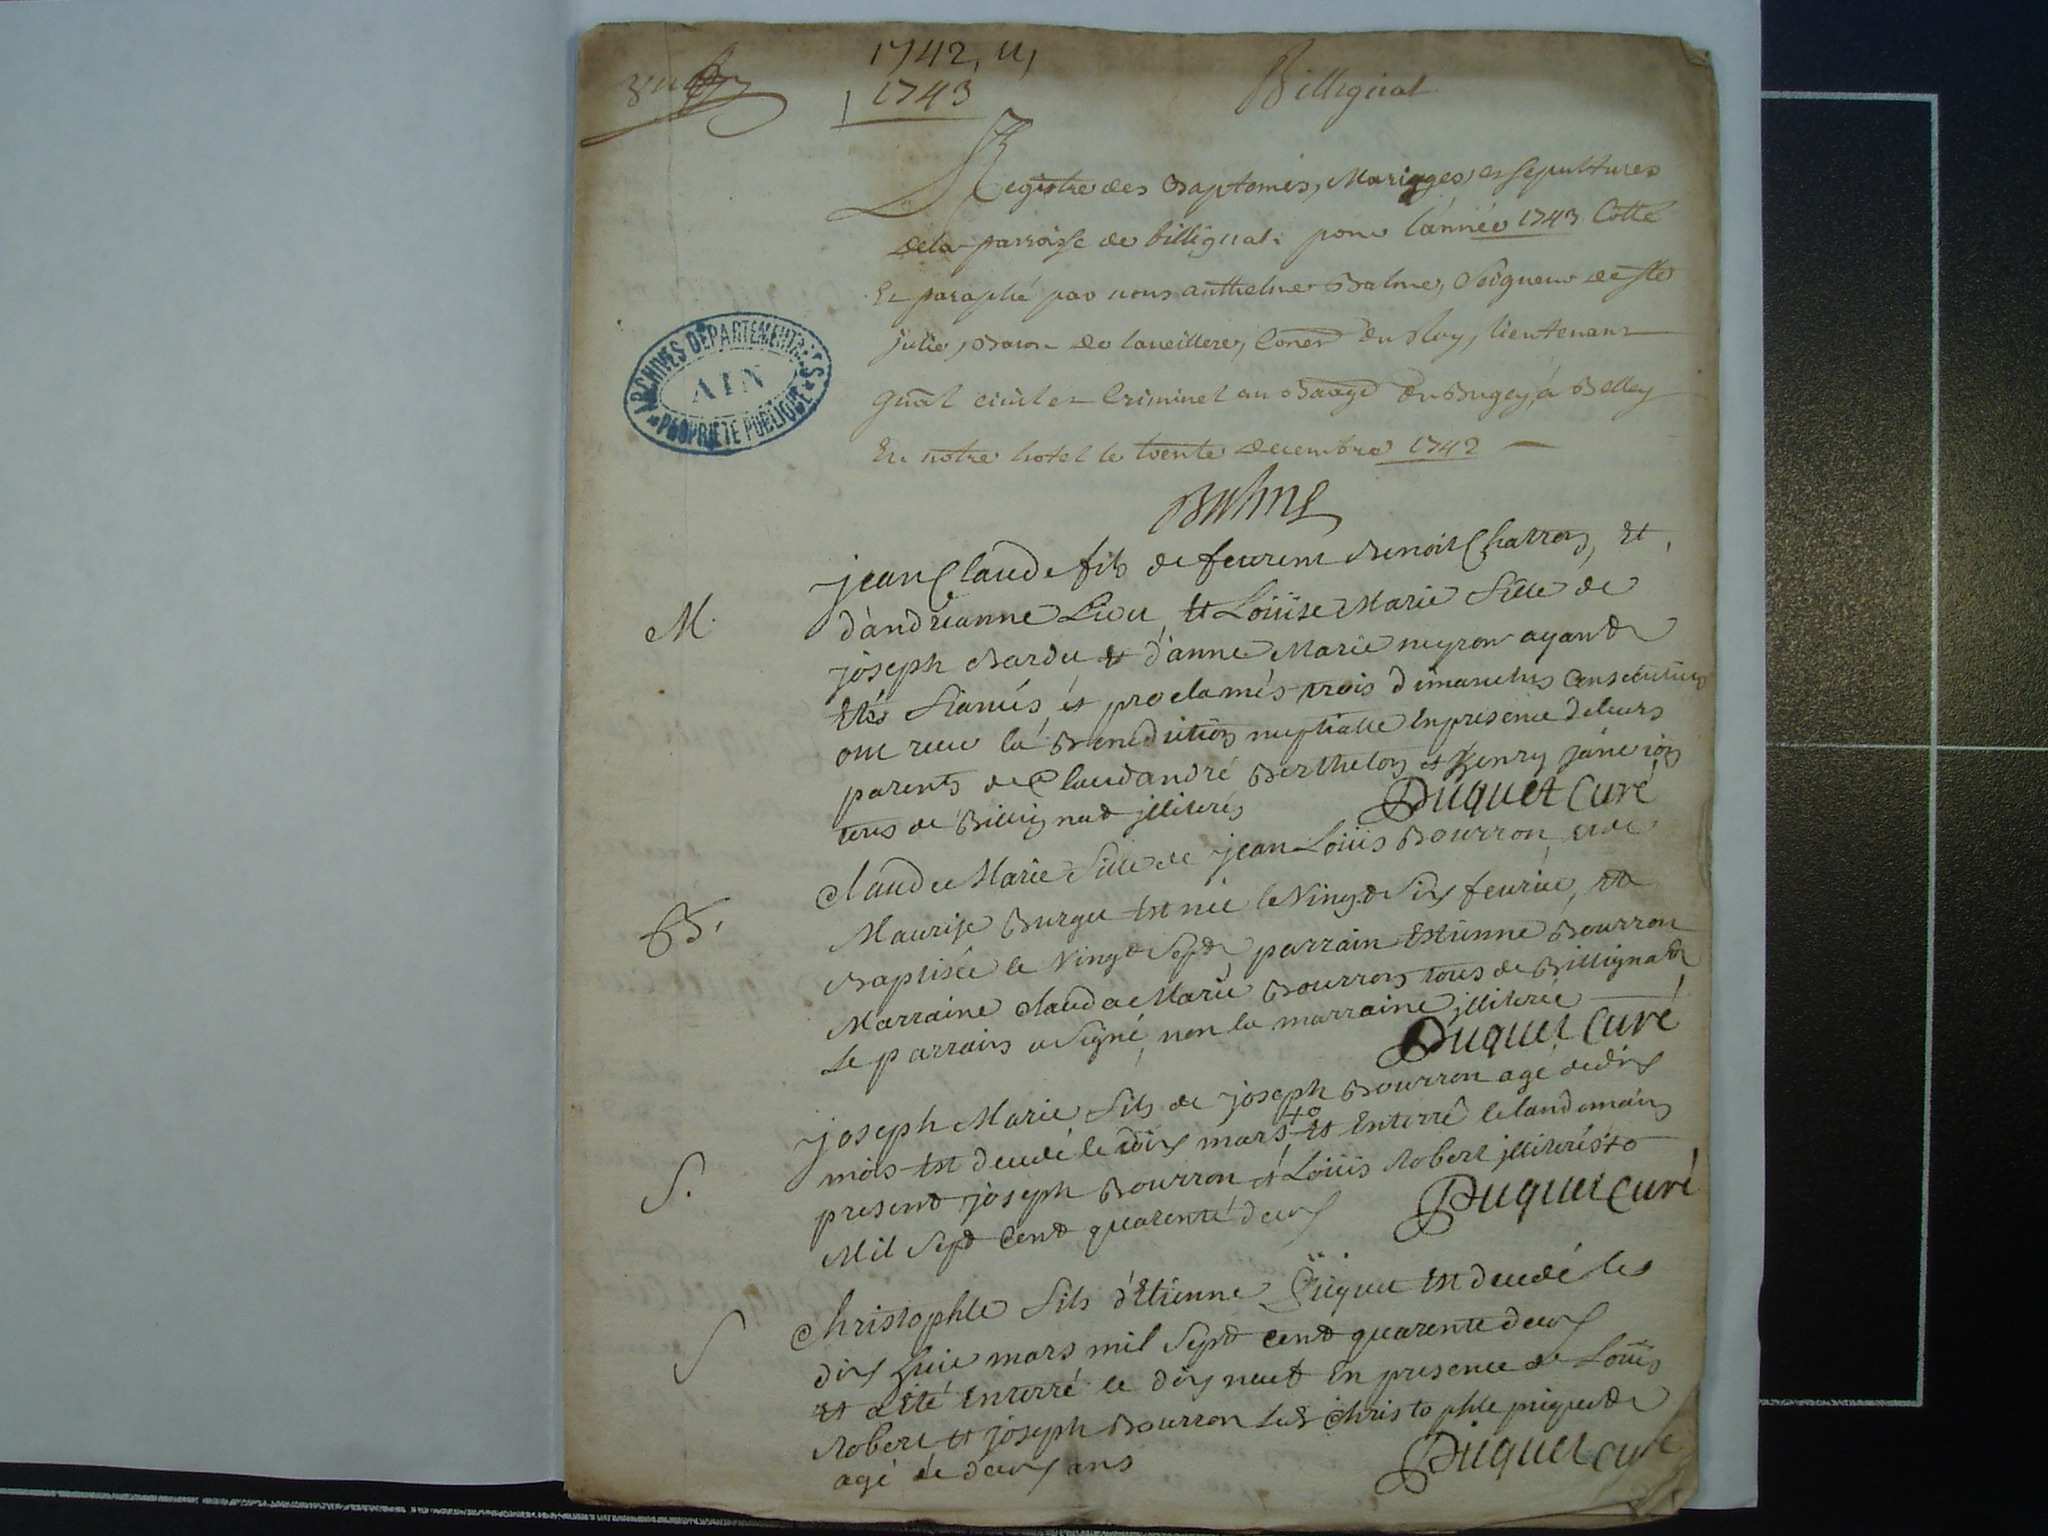 1742, et
1743
Billignat
Registre des Baptemes, Mariages, et sepultures
de la parroisse de billignat pour l'année 1743 Cotté
Et paraphé par nous anthelme Balme, Seigneur de Ste
julie, Baron de Conser du Roy, lieutenant
gnãl civil et Criminel au Baage du Bugey, à Belley
En notre hotel le trente decembre 1742
Balme
ARCHIVES DÉPARTEMENTALES
AIN
PROPRIÉTÉ PUBLIQUE
M.
jean Claude fils de Benoit Charron, Et
d'andréanne et Loüise Marie fille de
joseph Bardu et d'anne Marie neyron ayant
Etés fiancés et proclamés trois dimanches Consecutives
ont receu la Benediction nuptialle En presence de leurs
parents de Claud andré Berthelon et henry janevion
tous de Billignad jlliterés
Duquet Curé
B.
Clauda Marie fille de jean Loüis Bourron et de
Maurise Burgu Est née le Vingt Six feurier, et
Baptisée le Vingt Sept parrain Estienne Bourron
Marraine Clauda Marie Bourron tous de Billignat
Le parrain a Signé, non la marraine jlliterée
Duquet Curé
S.
joseph Marie fils de joseph Bourron agé de dix
mois Est decedé le dix mars Et Enterré le landemain
present joseph Bourron et Loüis Robert jlliterés
Mil Sept Cent quarente deux
Duquet Curé
S
Christophle fils d'Etienne Est decedé le
dix huit mars mil Sept cent quarente deux
Et a Eté Enterré le dix neuf En presence de Loüis
Robert et joseph Bourron Christophle
agé de deux ans
Duquet Curé